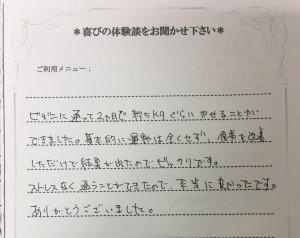 ＊喜びの体験談をお聞かせ下さい＊
ご利用メニュー：
に通って2ヵ月で約5Kgぐらいやせることが
できました。基本的に運動は全くせず、食事を改善
しただけで結果が出たのでビックリです。
ストレスなく通うことができたので、本当に良かったです。
ありがとうございました。